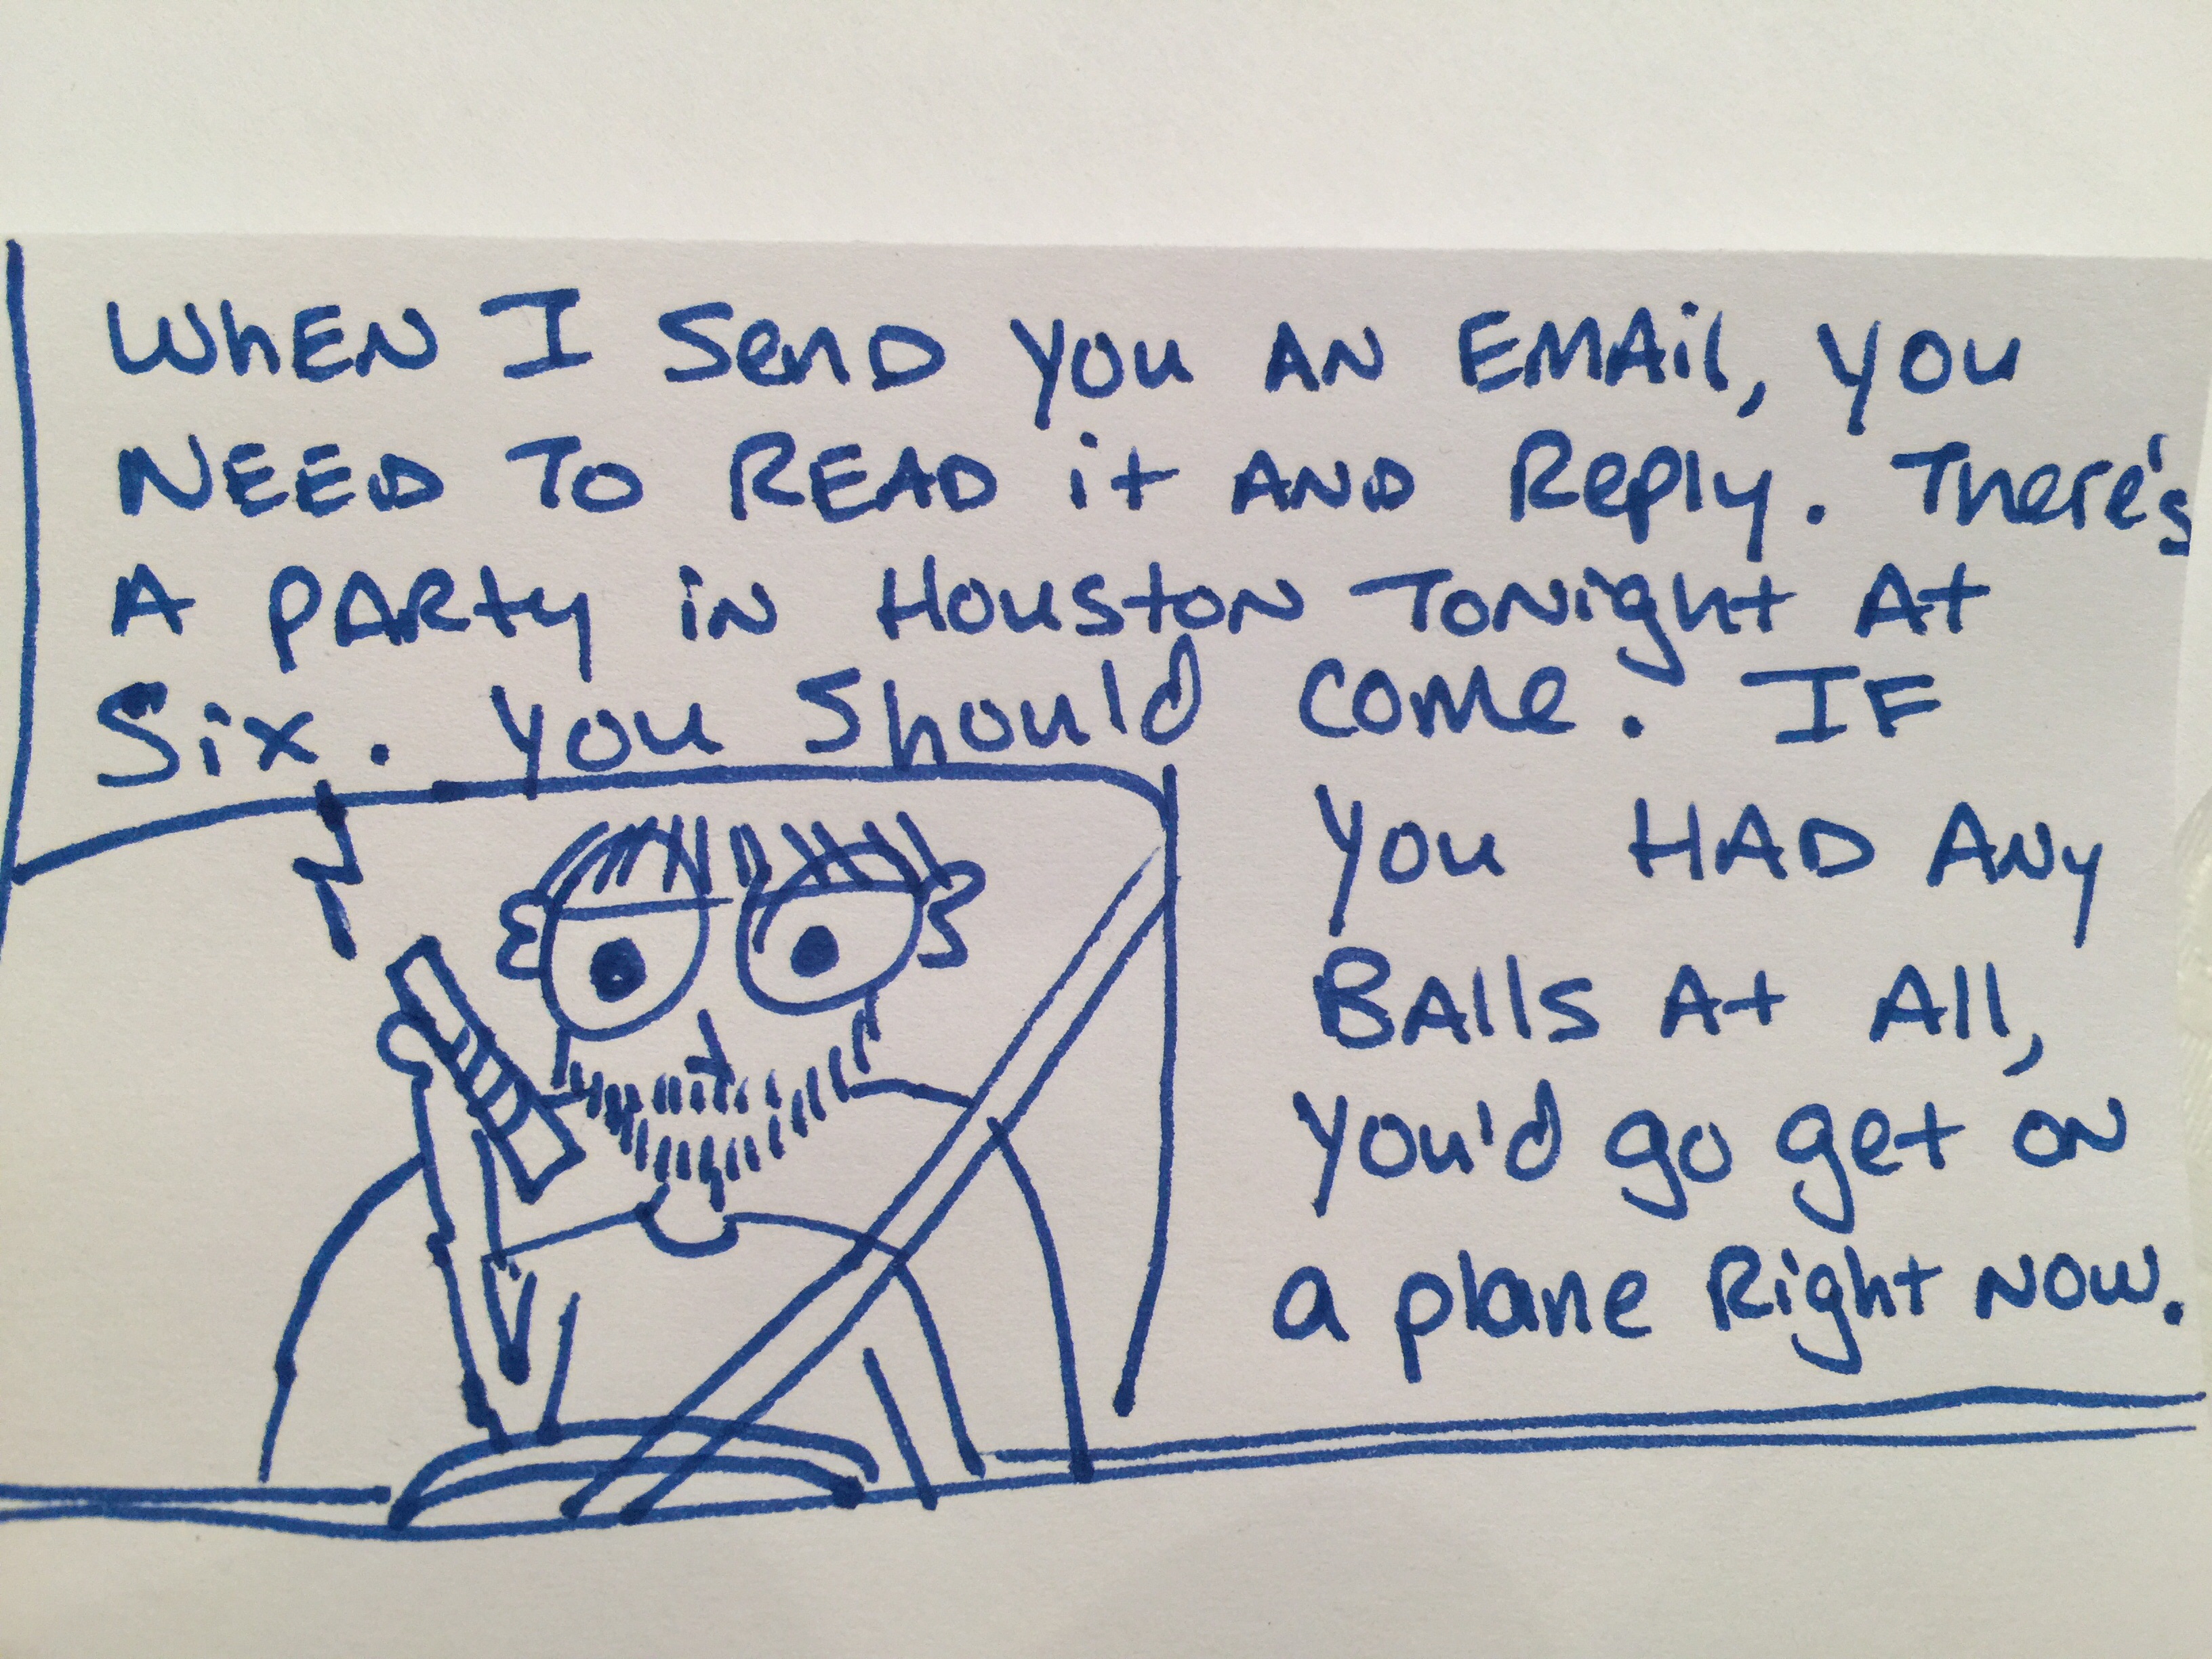 WhEN I SenD you AN EMAil, you
NEED TO READ it AND Reply. There's
A PARty iN HoustoN ToNight At
Six. you Should come. IF
you HAD ANy
BAlls At All,
you'd go get oN
a plane Right Now.